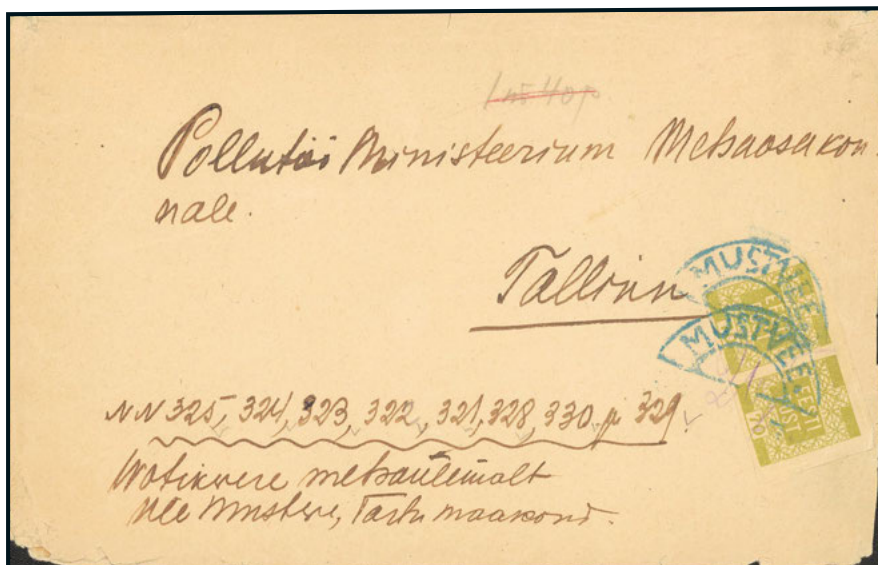 1 mk 40 p
Pollutöö Ministeerium Metsaosakon-
nale.
Tallinn
MUSTVEE
MUSTVEE
EESTI
POST
70
NN 325, 324, 323, 322, 321, 328, 330 ja 329.
Wotikvere metsaülemalt
Tartu maakond.